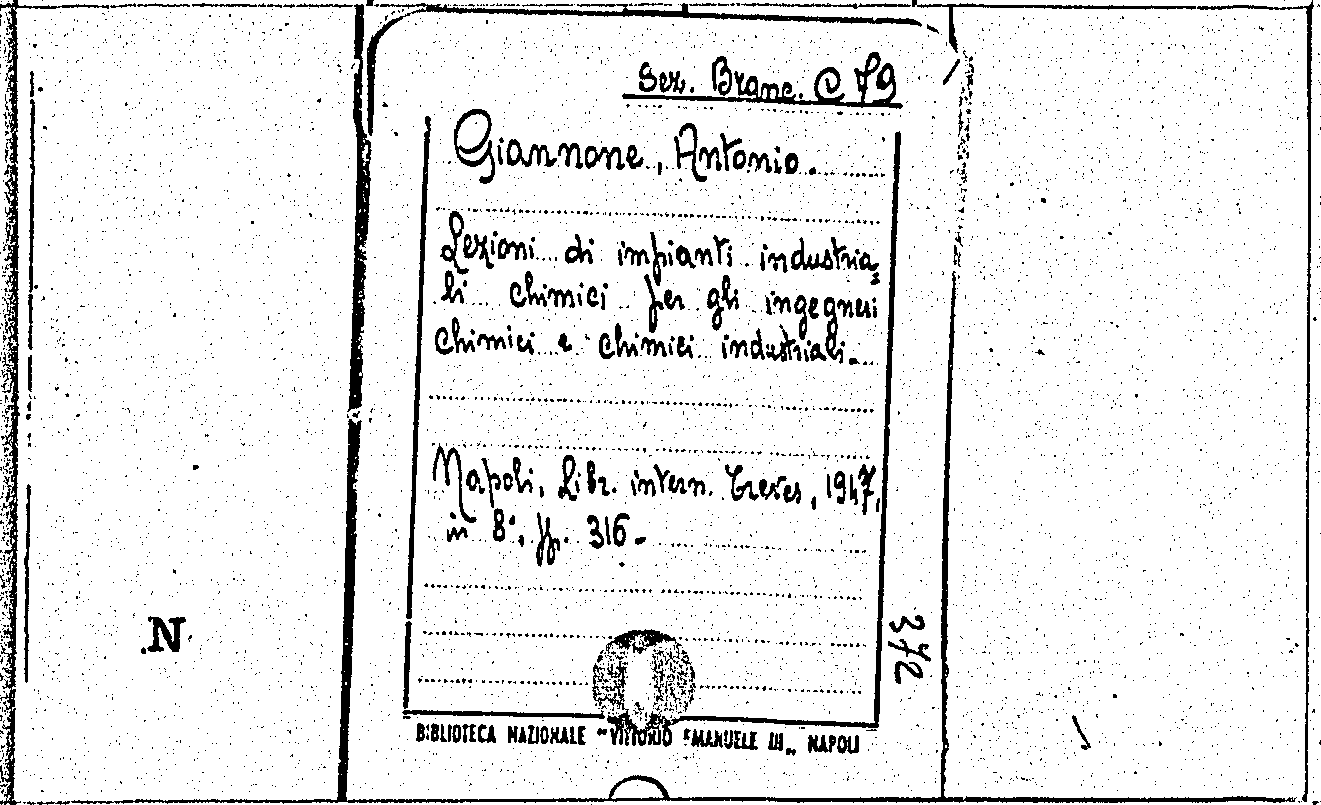 Sez. Branc. C 79
Giannone, Antonio.
Lezioni di impianti industria„
li chimici per gli ingegneri
chimici e chimici industriali.
Napoli, Libr. intern. Treves, 1947,
in 8°, pp. 316.
372
N
BIBLIOTECA NAZIONALE "VITTORIO EMANUELE III„ NAPOLI